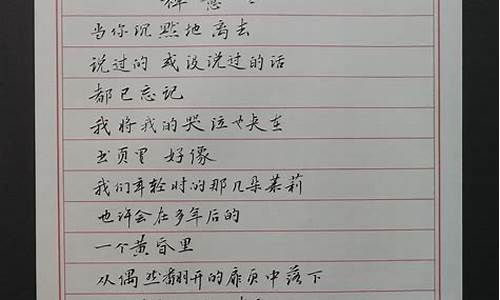 禅意
当你沉默地离去
说过的 或没说过的话
都已忘记
我将我的哭泣也夹在
书页里 好像
我们年轻时的那几朵茉莉
也许会在多年后的
一个黄昏里
从偶然翻开的扉页中落下